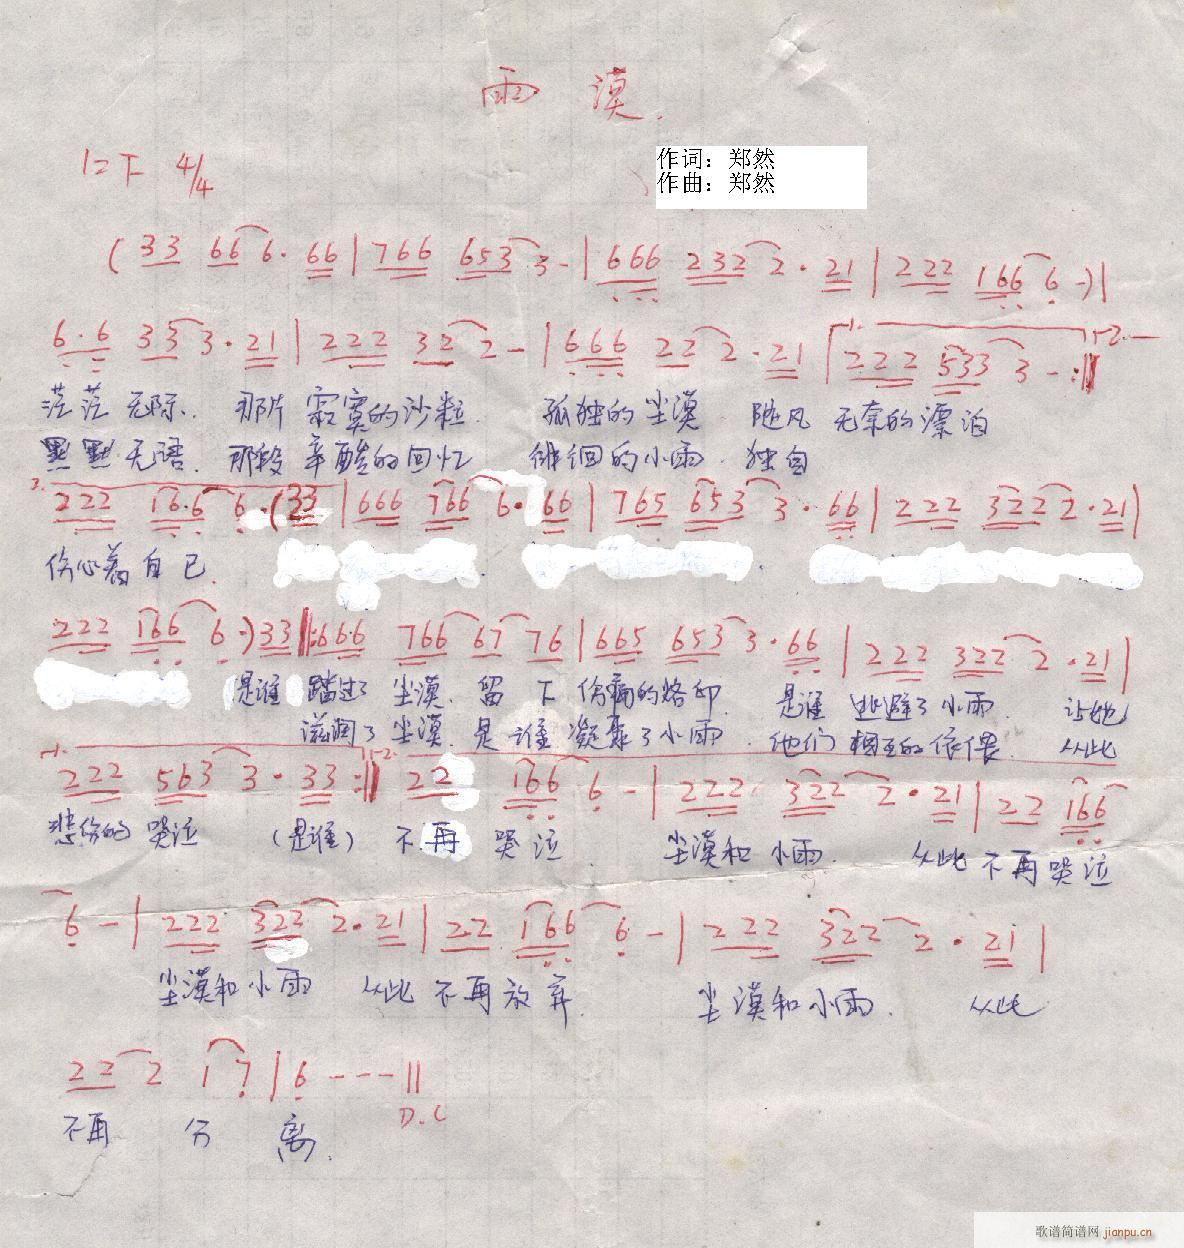 雨漠.
1=下 4/4
作词：郑然
作曲：郑然
( 33 66 6· 66 | 766 653 3 - | 666 232 2 · 21 | 222 166 6 -) |
6·6 33 3 · 21 | 222 32 2 - | 666 22 2 · 21 | 1. 222 533 3 - :| 2.
茫茫无际. 那片寂寞的沙粒. 孤独的尘漠 随风无奈的漂泊
默默无语. 那段辛酸的回忆 徘徊的小雨. 独自
222 16·6 6 · (33 | 666 766 6 · 66 | 765 653 3 · 66 | 222 322 2 · 21 |
伤心着自己.
222 166 6 ·) 33 |: 666 766 67 76 | 665 653 3 · 66 | 222 322 2 · 21 |
是谁踏过了尘漠. 留下伤痛的烙印. 是谁逃避了小雨 让她
滋润了尘漠. 是谁凝聚了小雨. 他们相互的依偎. 从此
1. 222 563 3 · 33 :| 2. 22 166 6 - | 222 322 2 · 21 | 22 166
悲伤的哭泣 (是谁) 不再哭泣. 尘漠和小雨. 从此不再哭泣
6 - | 222 322 2 · 21 | 22 166 6 - | 222 322 2 · 21 |
尘漠和小雨 从此不再放弃. 尘漠和小雨. 从此
22 2 1 7 | 6 - - - ||
D.C
不再分离.
歌谱简谱网 jianpu.cn